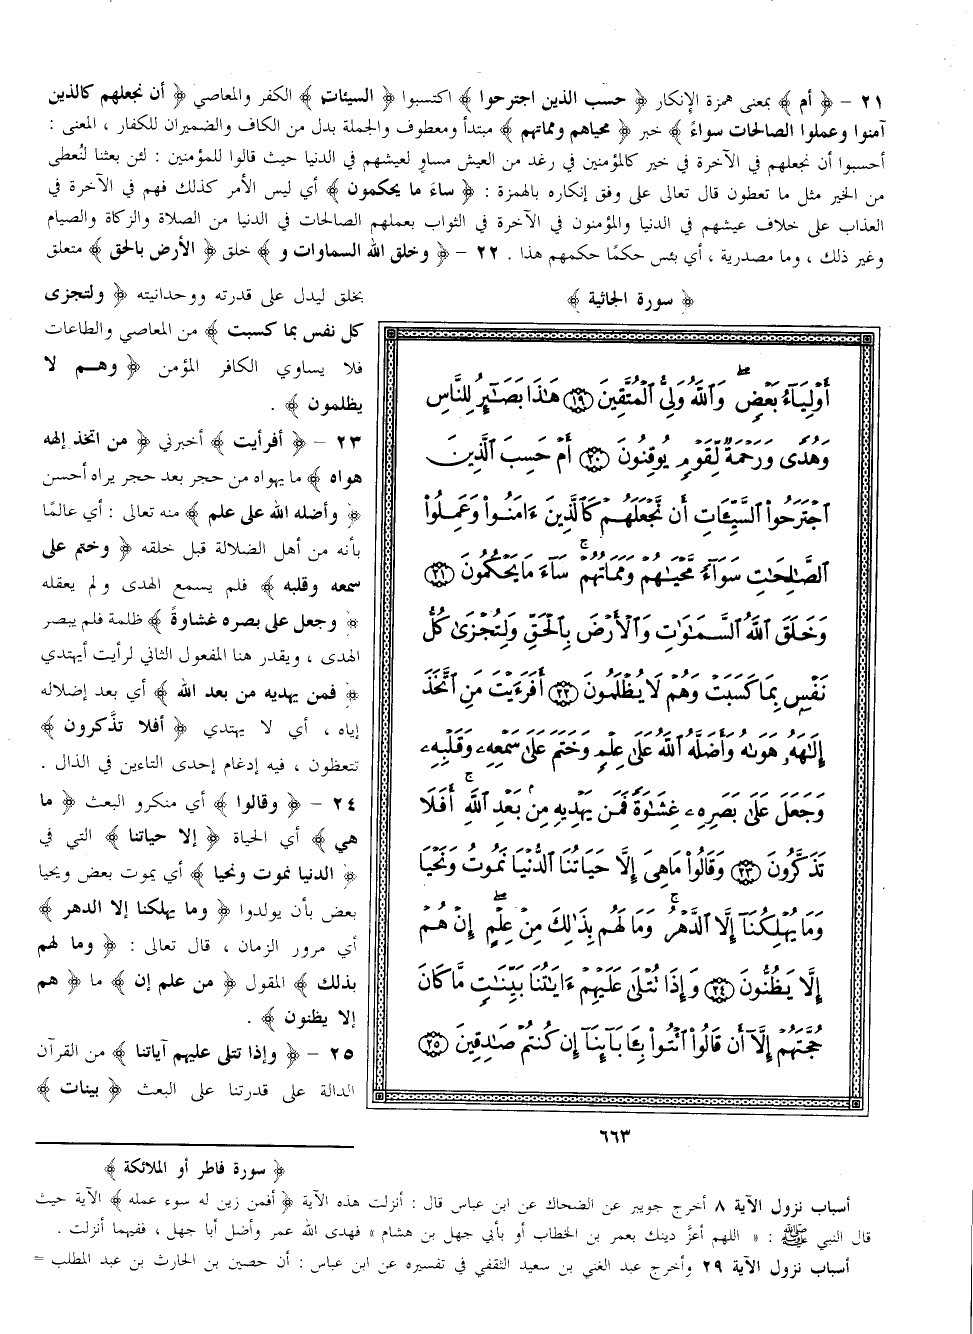 ٢١ – ﴿ أم ﴾ بمعنى همزة الإنكار ﴿ حسب الذين اجترحوا ﴾ اكتسبوا ﴿ السيئات ﴾ الكفر والمعاصي ﴿ أن نجعلهم كالذين
آمنوا وعملوا الصالحات سواءً ﴾ خبر ﴿ محياهم ومماتهم ﴾ مبتدأ ومعطوف والجملة بدل من الكاف والضميران للكفار ، المعنى :
أحسبوا أن نجعلهم في الآخرة في خير كالمؤمنين في رغد من العيش مساوٍ لعيشهم في الدنيا حيث قالوا للمؤمنين : لئن بعثنا لنُعطى
من الخير مثل ما تعطون قال تعالى على وفق إنكاره بالهمزة : ﴿ ساءَ ما يحكمون ﴾ أي ليس الأمر كذلك فهم في الآخرة في
العذاب على خلاف عيشهم في الدنيا والمؤمنون في الآخرة في الثواب بعملهم الصالحات في الدنيا من الصلاة والزكاة والصيام
وغير ذلك ، وما مصدرية ، أي بئس حكمًا حكمهم هذا . ٢٢ – ﴿ وخلق الله السماوات و ﴾ خلق ﴿ الأرض بالحق ﴾ متعلق
﴿ سورة الجاثية ﴾
أَوْلِيَآءُ بَعْضٍ ۖ وَٱللَّهُ وَلِىُّ ٱلْمُتَّقِينَ ١٩ هَـٰذَا بَصَـٰٓئِرُ لِلنَّاسِ
وَهُدًى وَرَحْمَةٌ لِّقَوْمٍ يُوقِنُونَ ٢٠ أَمْ حَسِبَ ٱلَّذِينَ
ٱجْتَرَحُوا۟ ٱلسَّيِّـَٔاتِ أَن نَّجْعَلَهُمْ كَٱلَّذِينَ ءَامَنُوا۟ وَعَمِلُوا۟
ٱلصَّـٰلِحَـٰتِ سَوَآءً مَّحْيَاهُمْ وَمَمَاتُهُمْ ۚ سَآءَ مَا يَحْكُمُونَ ٢١
وَخَلَقَ ٱللَّهُ ٱلسَّمَـٰوَٰتِ وَٱلْأَرْضَ بِٱلْحَقِّ وَلِتُجْزَىٰ كُلُّ
نَفْسٍۭ بِمَا كَسَبَتْ وَهُمْ لَا يُظْلَمُونَ ٢٢ أَفَرَءَيْتَ مَنِ ٱتَّخَذَ
إِلَـٰهَهُۥ هَوَىٰهُ وَأَضَلَّهُ ٱللَّهُ عَلَىٰ عِلْمٍ وَخَتَمَ عَلَىٰ سَمْعِهِۦ وَقَلْبِهِۦ
وَجَعَلَ عَلَىٰ بَصَرِهِۦ غِشَـٰوَةً فَمَن يَهْدِيهِ مِنۢ بَعْدِ ٱللَّهِ ۚ أَفَلَا
تَذَكَّرُونَ ٢٣ وَقَالُوا۟ مَا هِىَ إِلَّا حَيَاتُنَا ٱلدُّنْيَا نَمُوتُ وَنَحْيَا
وَمَا يُهْلِكُنَآ إِلَّا ٱلدَّهْرُ ۚ وَمَا لَهُم بِذَٰلِكَ مِنْ عِلْمٍ ۖ إِنْ هُمْ
إِلَّا يَظُنُّونَ ٢٤ وَإِذَا تُتْلَىٰ عَلَيْهِمْ ءَايَـٰتُنَا بَيِّنَـٰتٍ مَّا كَانَ
حُجَّتَهُمْ إِلَّآ أَن قَالُوا۟ ٱئْتُوا۟ بِـَٔابَآئِنَآ إِن كُنتُمْ صَـٰدِقِينَ ٢٥
بخلق ليدل على قدرته ووحدانيته ﴿ ولتجزى
كل نفس بما كسبت ﴾ من المعاصي والطاعات
فلا يساوي الكافر المؤمن ﴿ وهم لا
يظلمون ﴾ .
٢٣ – ﴿ أفرأيت ﴾ أخبرني ﴿ من اتخذ إلهه
هواه ﴾ ما يهواه من حجر بعد حجر يراه أحسن
﴿ وأضله الله على علم ﴾ منه تعالى : أي عالمًا
بأنه من أهل الضلالة قبل خلقه ﴿ وختم على
سمعه وقلبه ﴾ فلم يسمع الهدى ولم يعقله
﴿ وجعل على بصره غشاوةً ﴾ ظلمة فلم يبصر
الهدى ، ويقدر هنا المفعول الثاني لرأيت أيهتدي
﴿ فمن يهديه من بعد الله ﴾ أي بعد إضلاله
إياه ، أي لا يهتدي ﴿ أفلا تذَّكرون ﴾
تتعظون ، فيه إدغام إحدى التاءين في الذال .
٢٤ – ﴿ وقالوا ﴾ أي منكرو البعث ﴿ ما
هي ﴾ أي الحياة ﴿ إلا حياتنا ﴾ التي في
﴿ الدنيا نموت ونحيا ﴾ أي يموت بعض ويحيا
بعض بأن يولدوا ﴿ وما يهلكنا إلا الدهر ﴾
أي مرور الزمان ، قال تعالى : ﴿ وما لهم
بذلك ﴾ المقول ﴿ من علم إن ﴾ ما ﴿ هم
إلا يظنون ﴾ .
٢٥ – ﴿ وإذا تتلى عليهم آياتنا ﴾ من القرآن
الدالة على قدرتنا على البعث ﴿ بينات ﴾
٦٦٣
﴿ سورة فاطر أو الملائكة ﴾
أسباب نزول الآية ٨ أخرج جويبر عن الضحاك عن ابن عباس قال : أنزلت هذه الآية ﴿ أفمن زين له سوء عمله ﴾ الآية حيث
قال النبي ﷺ : « اللهم أعزَّ دينك بعمر بن الخطاب أو بأبي جهل بن هشام » فهدى الله عمر وأضل أبا جهل ، ففيهما أنزلت .
أسباب نزول الآية ٢٩ وأخرج عبد الغني بن سعيد الثقفي في تفسيره عن ابن عباس : أن حصين بن الحارث بن عبد المطلب =